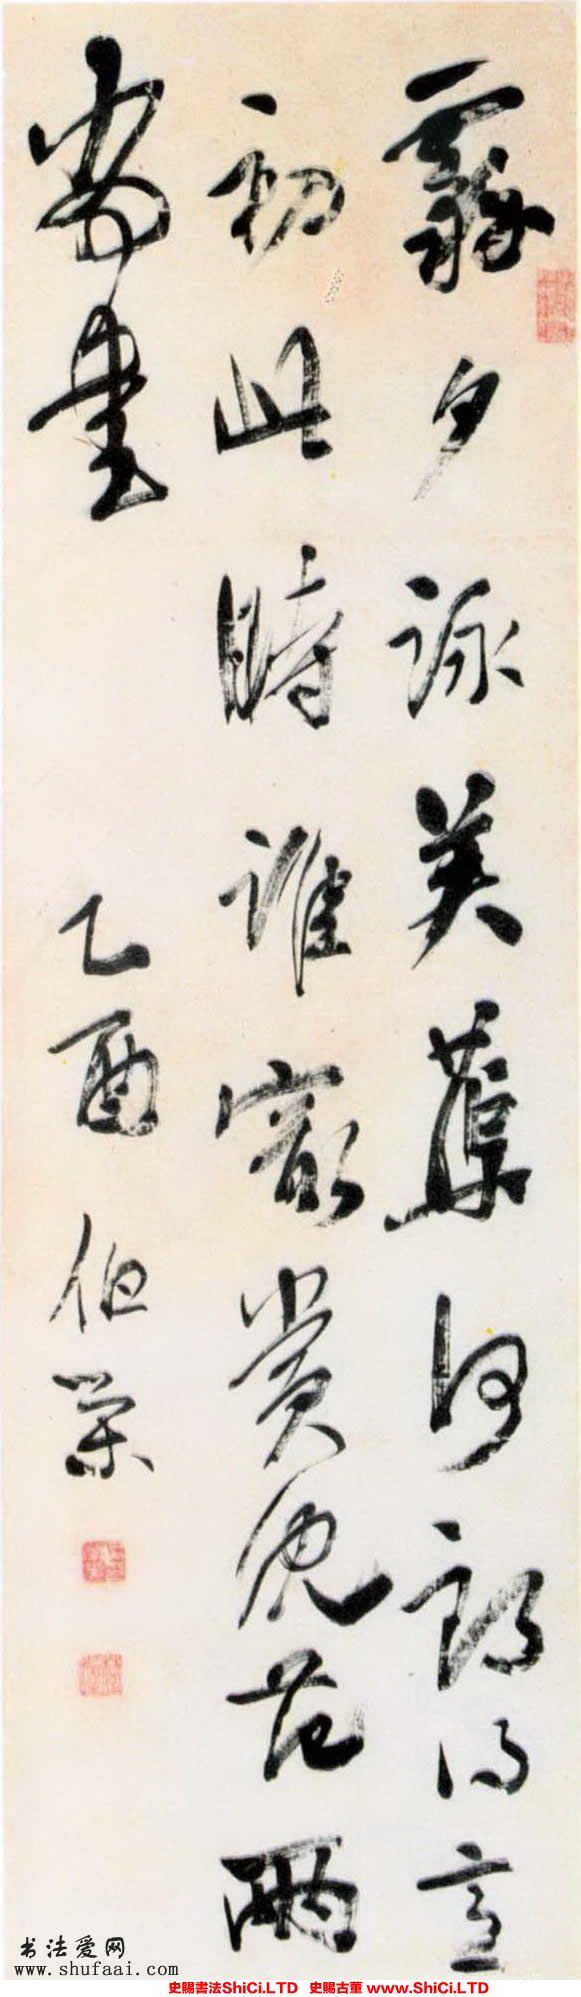 霽夕詠芙蕖何郎得意
初此時誰最賞沈范兩
尚書　乙酉伯榮
书法爱网
www.shufaai.com
史賜書法ShiCi.LTD　史賜古董 www.ShiCi.LTD